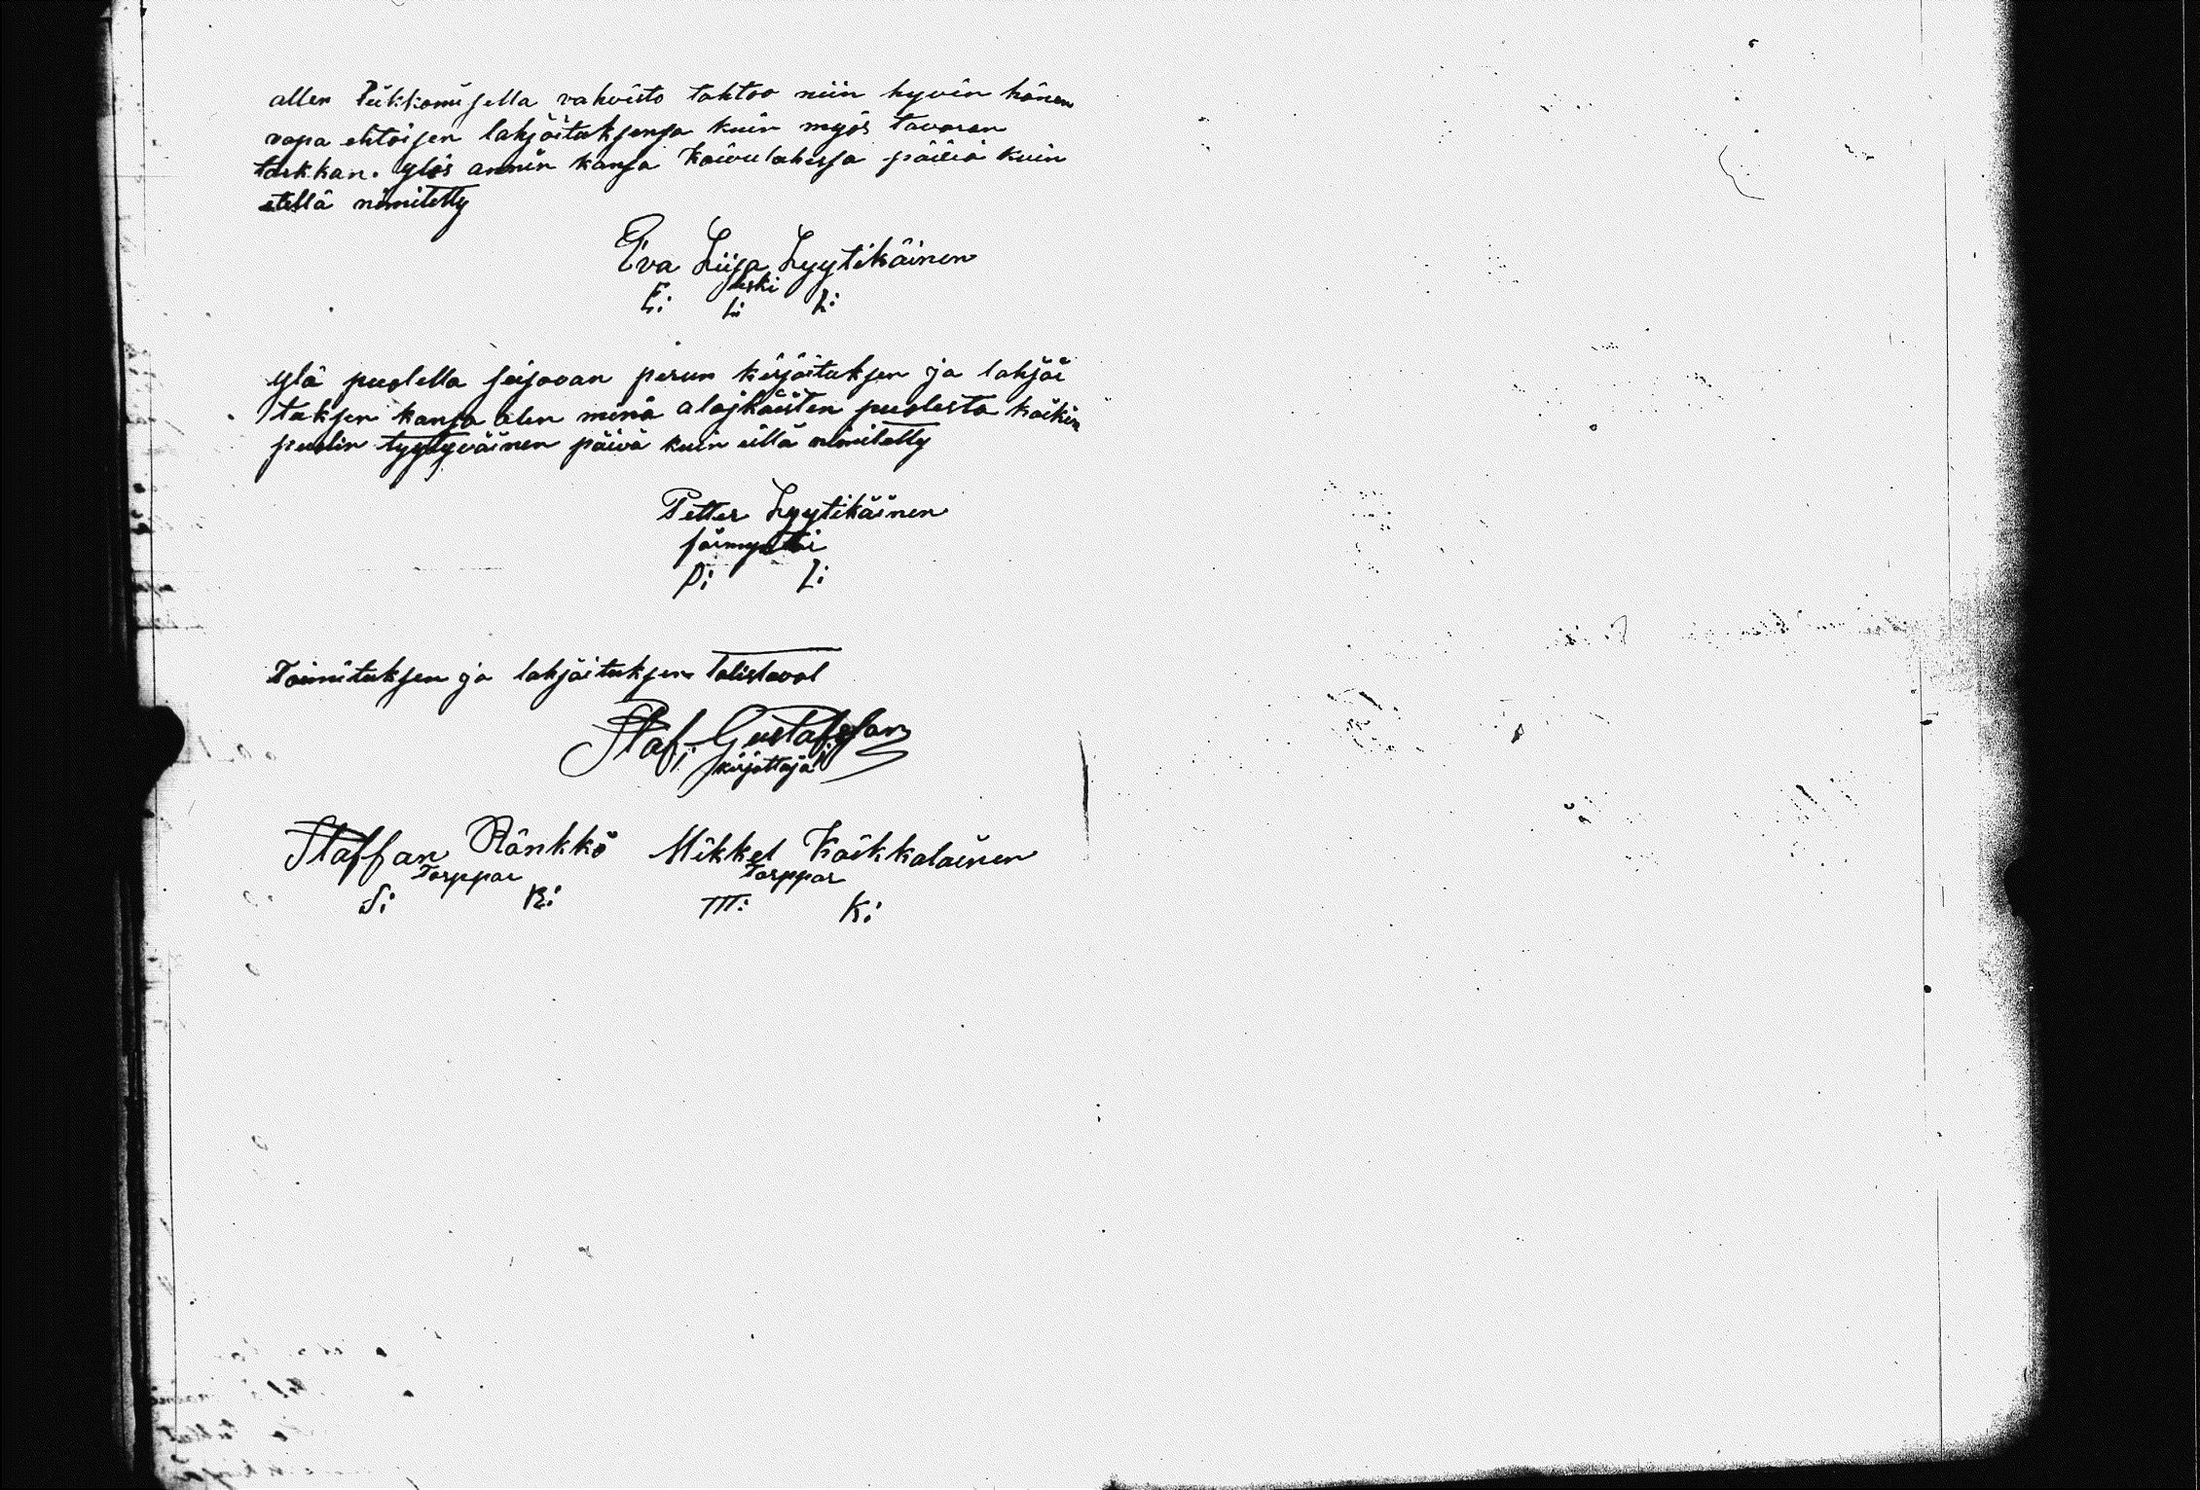 allen Piikkomisella vahvisto tahtoo niin hyvin hänen
vapa ehtoisen lahjoituksensa kuin myös tavaran
tarkkan. ylös annin kansa Koivulahessa päivä kuin
etellä nimitetty
Eva Liisa Lyytikäinen
leski
E: L: L:
ylä puolella seisovan perun kirjoituksen ja lahjoi
tuksen kansa olen minä alaikäisten puolesta kaikin
puolin tyytyväinen päivä kuin eillä nimitetty
Petter Lyytikäinen
förmyntäri
P: L:
Toimituksen ja lahjoituksen todistavat
Staf: Gustafsson
kirjottaja
Staffan Ränkkö Mikkel Kaikkalainen
Torppar Torppar
S: R: M: K: